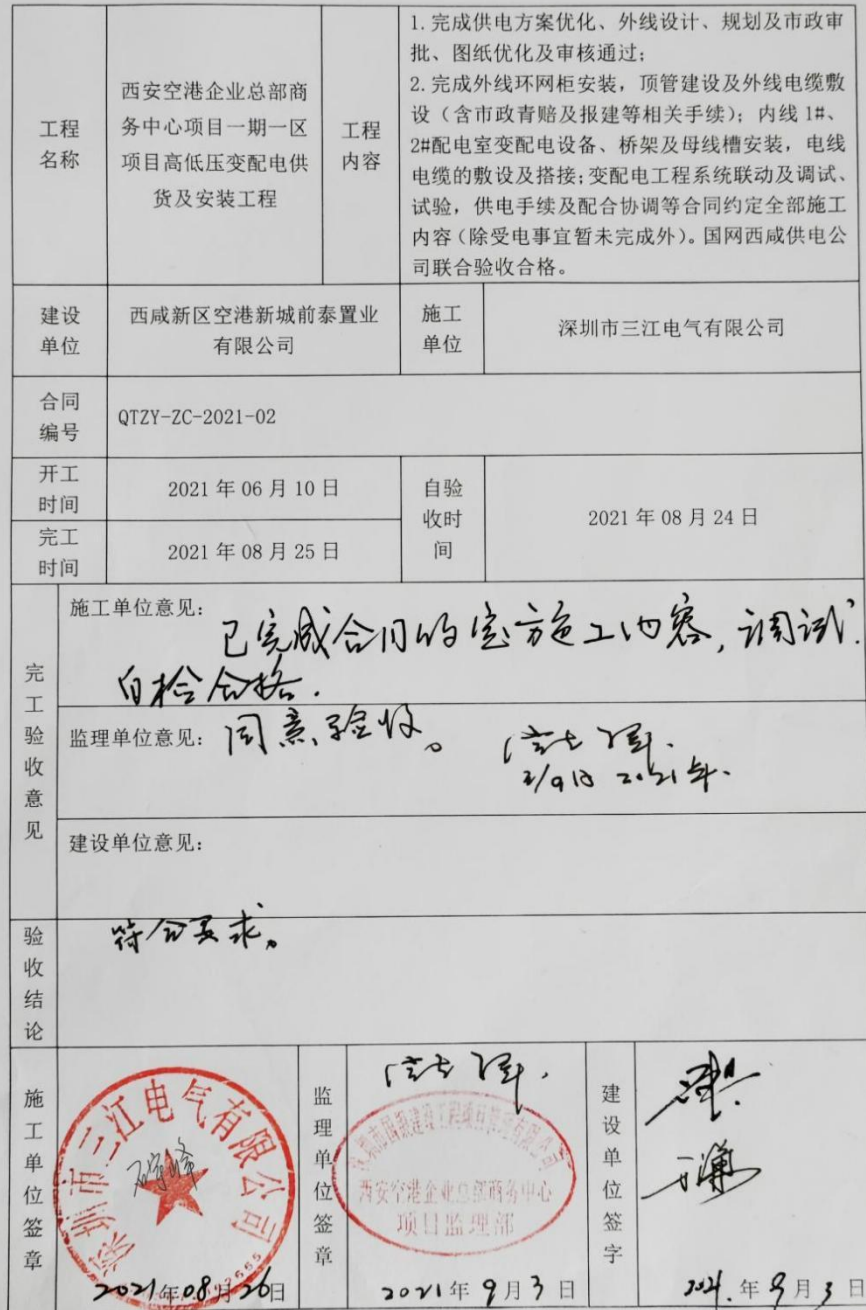 工程
名称
西安空港企业总部商
务中心项目一期一区
项目高低压变配电供
货及安装工程
工程
内容
1.完成供电方案优化、外线设计、规划及市政审
批、图纸优化及审核通过;
2.完成外线环网柜安装，顶管建设及外线电缆敷
设（含市政青赔及报建等相关手续）；内线 1#、
2#配电室变配电设备、桥架及母线槽安装，电线
电缆的敷设及搭接;变配电工程系统联动及调试、
试验，供电手续及配合协调等合同约定全部施工
内容（除受电事宜暂未完成外）。国网西咸供电公
司联合验收合格。
建设
单位
西咸新区空港新城前泰置业
有限公司
施工
单位
深圳市三江电气有限公司
合同
编号
QTZY-ZC-2021-02
开工
时间
2021 年 06 月 10 日
自验
收时
间
2021 年 08 月 24 日
完工
时间
2021 年 08 月 25 日
完工验收意见
施工单位意见：
已完成合同约定施工内容，调试.
自检合格.
监理单位意见：同意验收。
2021年.
建设单位意见：
符合要求。
验收结论
施工单位签章
深圳市三江电气有限公司
2021年08月26日
监理单位签章
西安空港企业总部商务中心
项目监理部
2021年9月3日
建设单位签字
2021.年9月3日